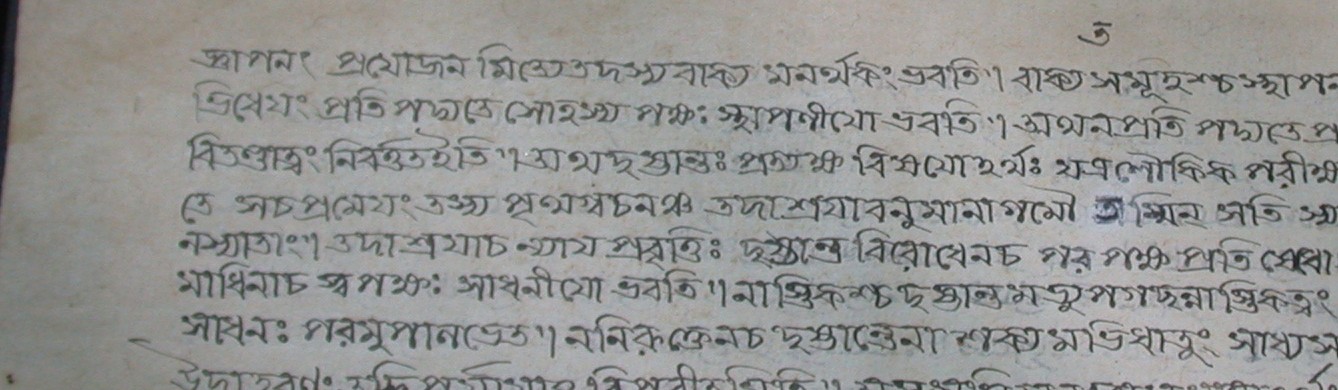 ৩
জ্ঞাপনং প্রযোজন মিত্যেতদস্য বাক্য মনর্থকং ভবতি৷ বাক্য সমূহশ্চ স্থাপন
ভিধেযং প্রতি পদ্যতে সোঽস্য পক্ষঃ স্থাপনীযো ভবতি৷ অথনপ্রতি পদ্যতে প্র
বিতণ্ডাত্বং নিবর্ত্ততইতি৷ অথ দৃষ্টান্তঃ প্রত্যক্ষ বিষযোঽর্থঃ যত্রলৌকিক পরীক্ষ
তে সচপ্রমেযং তস্য পৃথগ্বচনঞ্চ তদাশ্রযাবনুমানাগমৌ তস্মিন্ সতি স্যা
নস্যাতাং৷ তদাশ্রযাচ ন্যায প্রবৃত্তিঃ দৃষ্টান্ত বিরোধেনচ পর পক্ষ প্রতি ষেধো
মাধিনাচ স্ব পক্ষঃ সাধনীযো ভবতি৷ নাস্তিকশ্চ দৃষ্টান্তমভ্যুপগচ্ছন্নাস্তিকত্বং
সাধনঃ পরমুপালভেত৷ ননিরুক্তেনচ দৃষ্টান্তেনা শক্য মভিধাতুং সাধ্যস
উদাহরণং